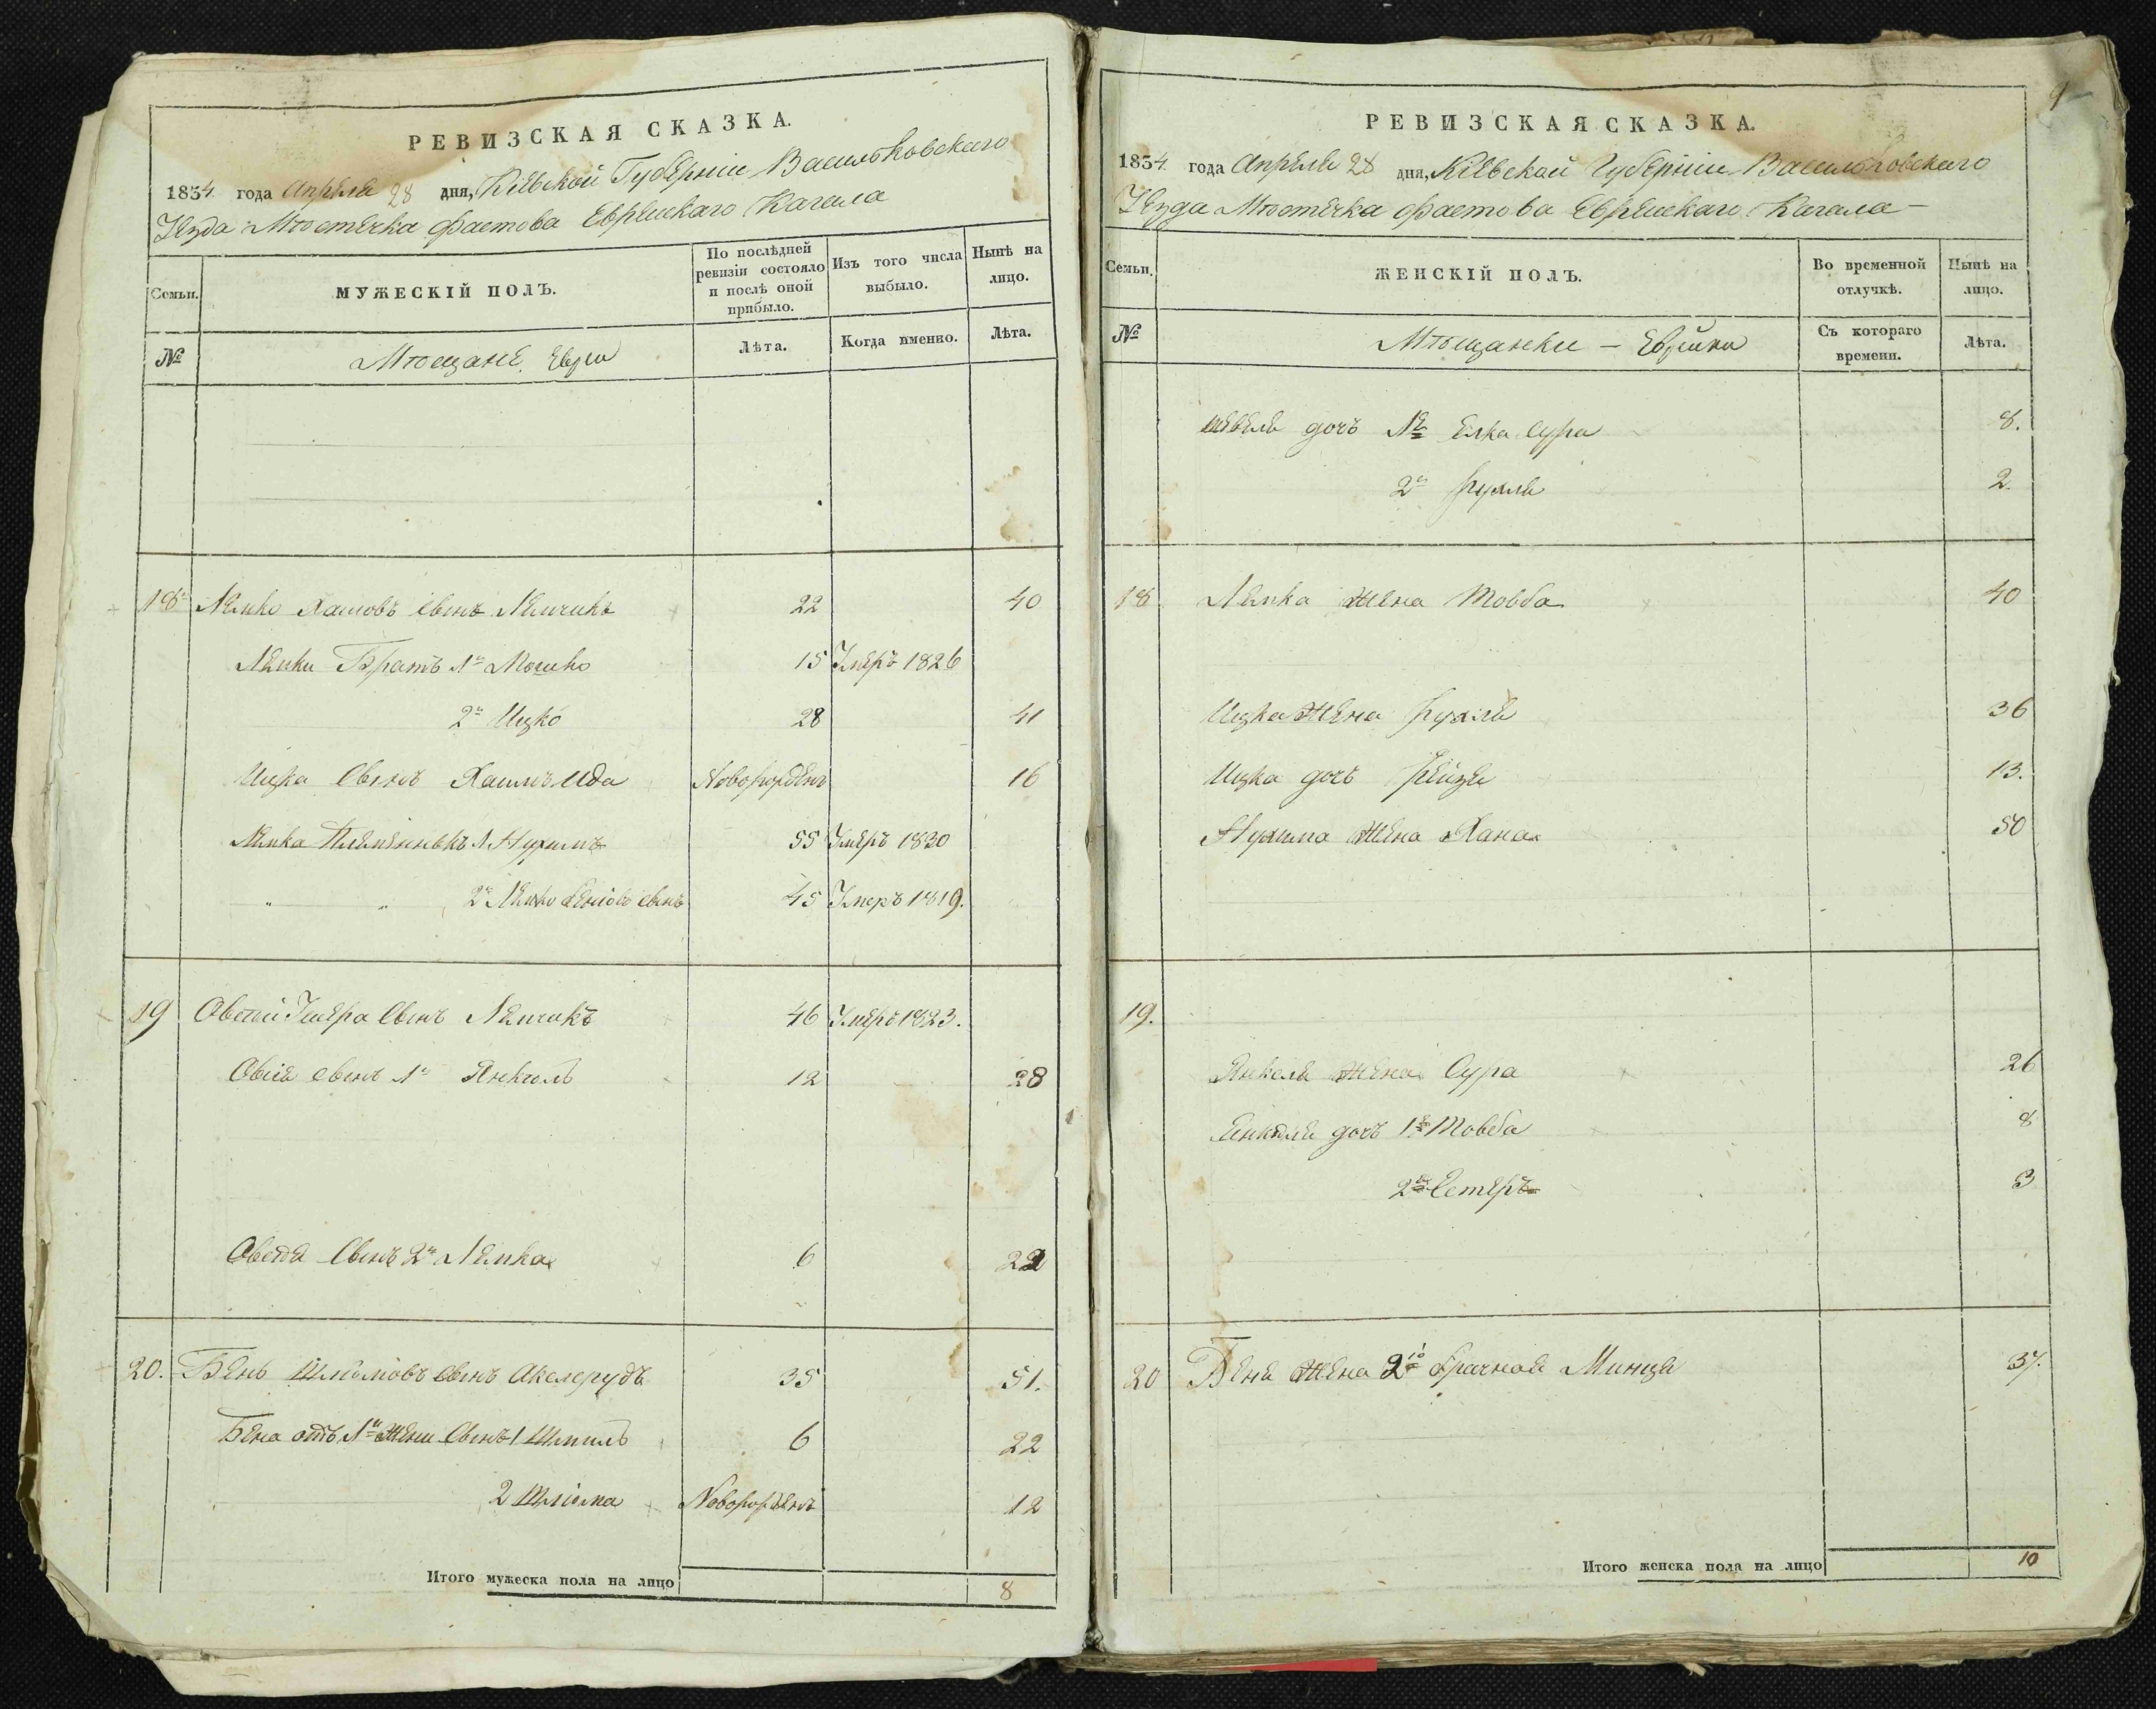 РЕВИЗСКАЯ СКАЗКА.
1834 года Апреля 28 дня, Кіевской Губерніи Васильковскаго
Уезда Мѣстечка Фастова Еврейскаго Кагала
Семьи.
МУЖЕСКІЙ ПОЛЪ.
По послѣдней ревизіи состояло и послѣ оной прибыло.
Изъ того числа выбыло.
Нынѣ на лицо.
№
Мѣщане Евреи
Лѣта.
Когда именно.
Лѣта.
18 Лейко сынъ 22 40
Братъ 1й Мошко 15 Умеръ 1826
2й Ицко 28 41
Ицка Сынъ Новорожденъ 16
Племянникъ 1 Нухимъ 55 Умеръ 1830
2й сынъ 45 Умеръ 1819.
19 Овсей Сынъ 46 Умеръ 1823.
Овсея сынъ 1й Янкель 12 28
Овсея Сынъ 2й 6 22
20. Бень сынъ Акслерудъ 35 51.
Бена отъ 1й Жены Сынъ 1 Шмиль 6 22
2 Шліома Новорожденъ 12
Итого мужеска пола на лицо 8
9
РЕВИЗСКАЯ СКАЗКА.
1834 года Апреля 28 дня, Кіевской Губерніи Васильковскаго
Уезда Мѣстечка Фастова Еврейскаго Кагала
Семьи.
ЖЕНСКІЙ ПОЛЪ.
Во временной отлучкѣ.
Нынѣ на лицо.
№
Мѣщанки — Еврейки
Съ котораго времени.
Лѣта.
дочь 1я Елка Сура 8.
2я Рухля 2.
18 жена Товба 40
Ицка жена Рухля 36
Ицка дочь Рейзя 13.
Нухима жена Хана 50
19.
Янкеля жена Сура 26
Янкеля дочь 1я Товба 8
2я Естеръ 3
20 Бена жена 2 брачная Минця 37.
Итого женска пола на лицо 10